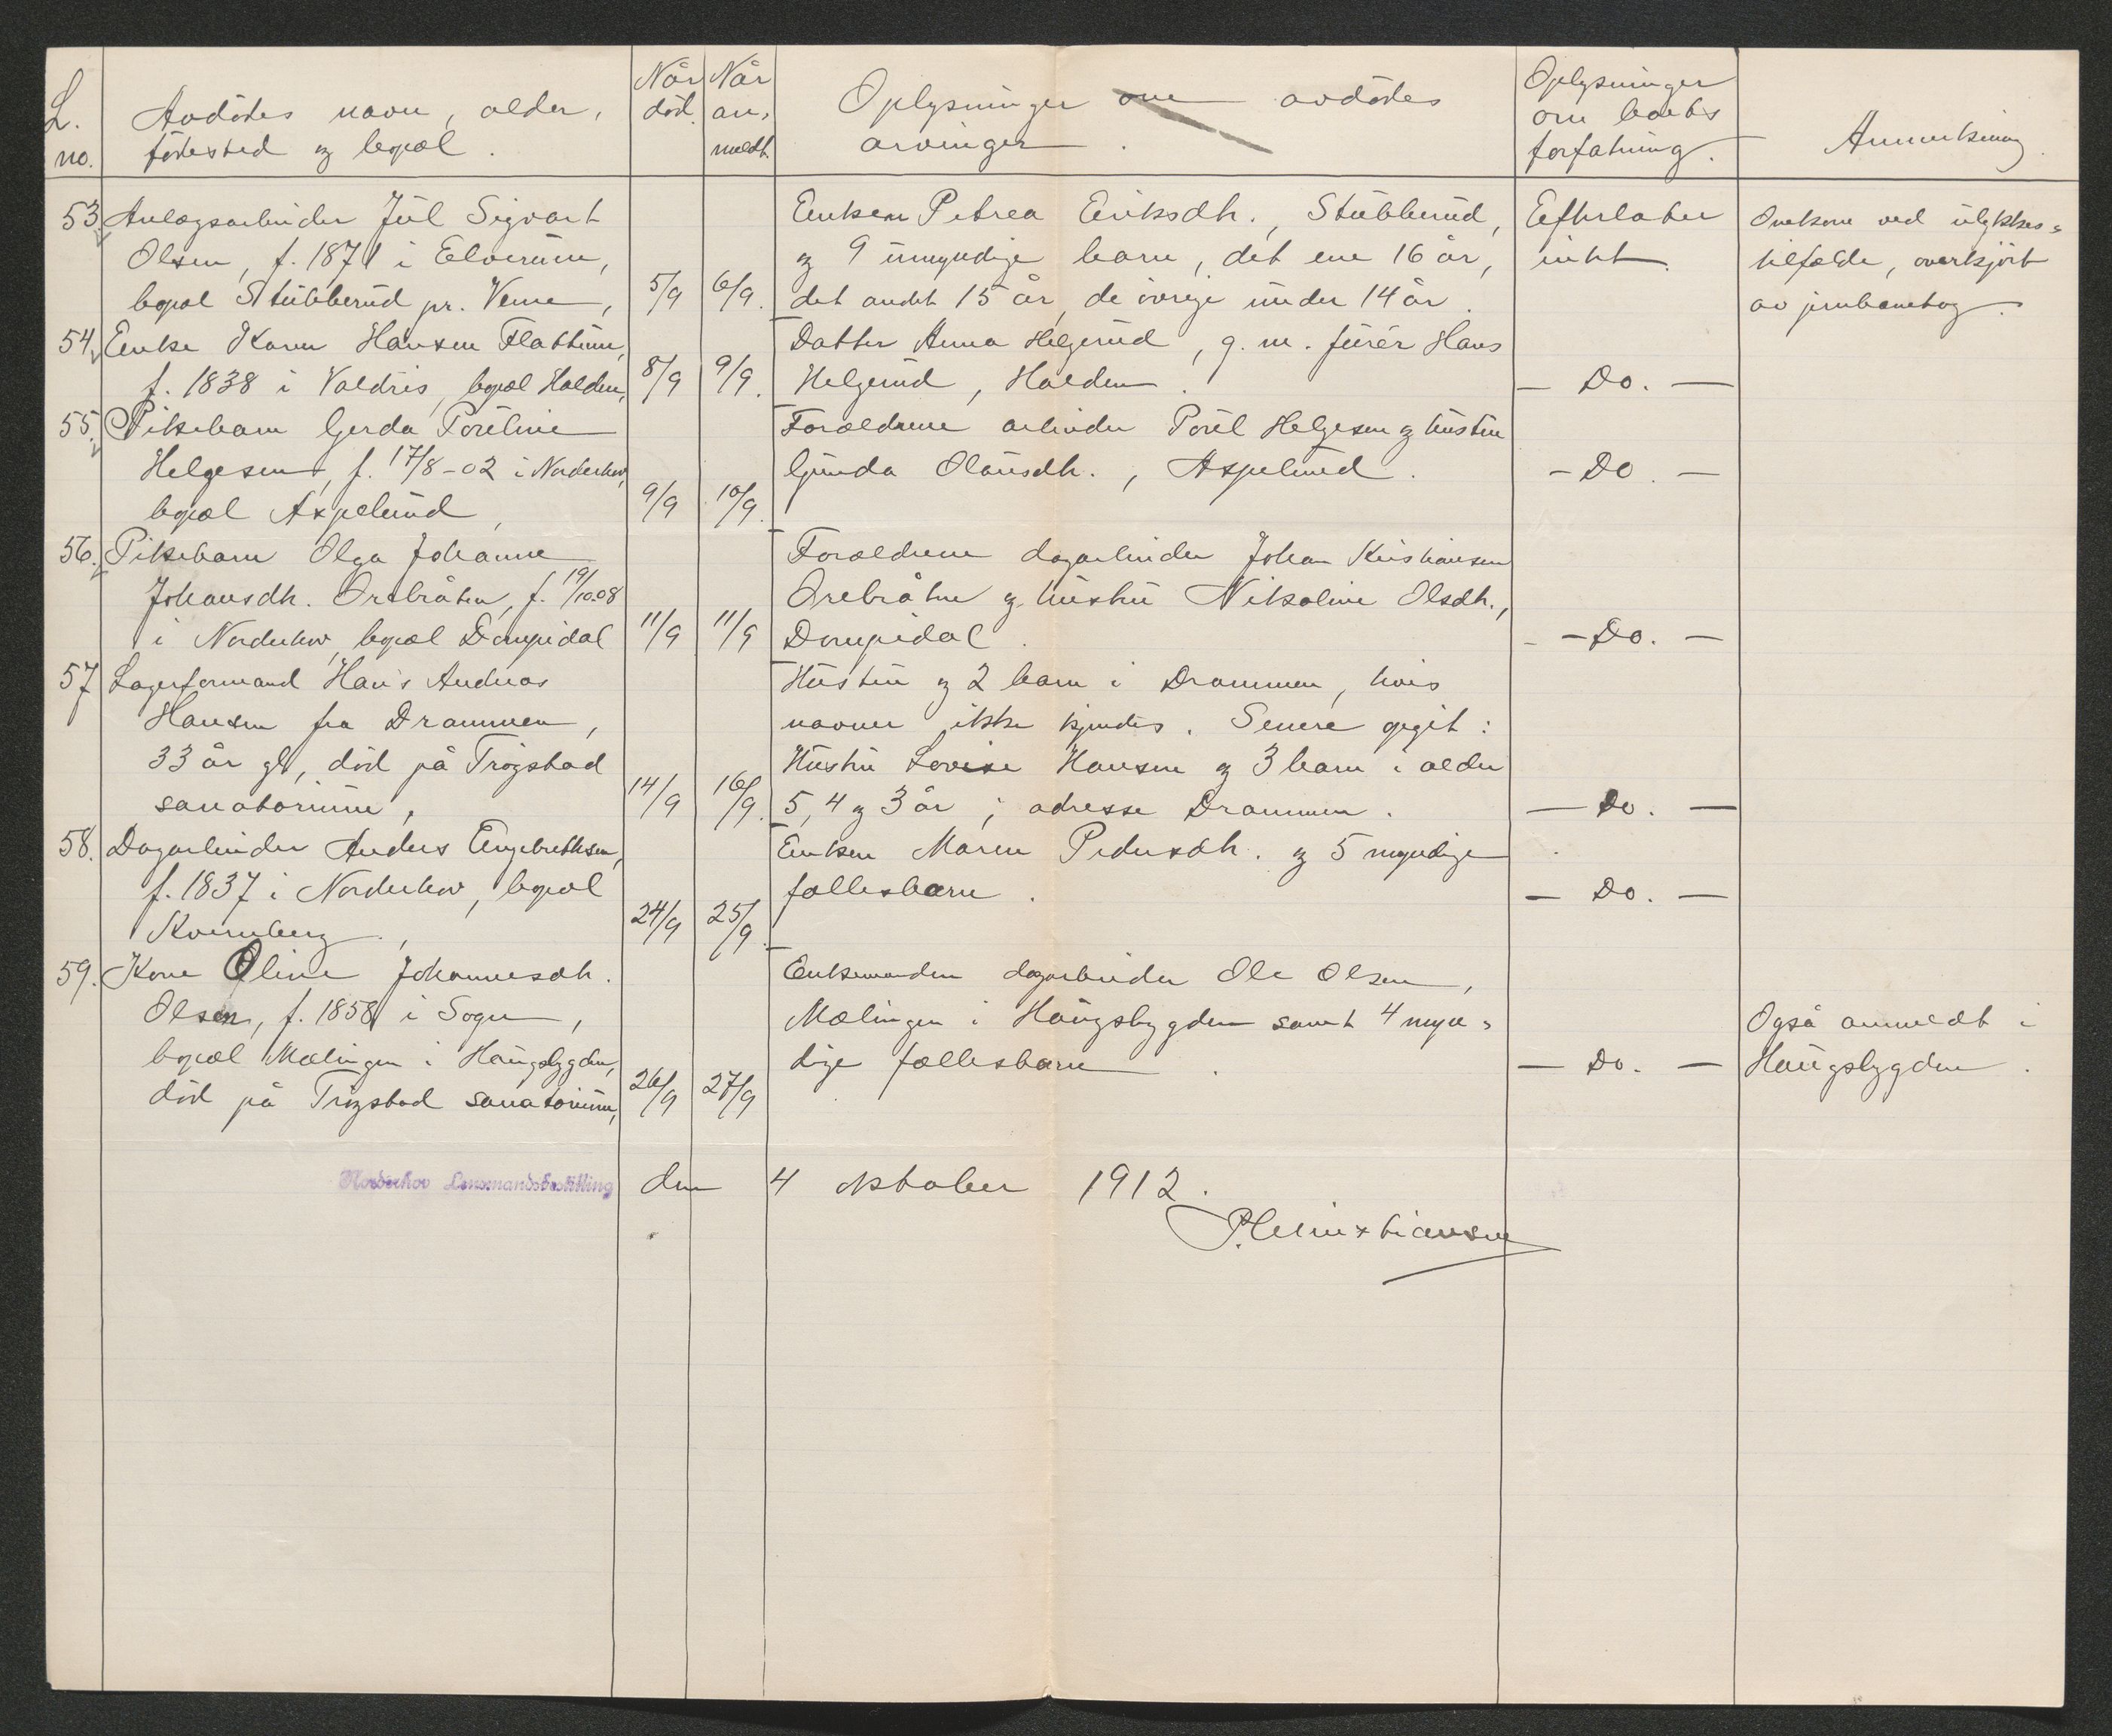 L. no.
Avdödes navn, alder, födested og bopæl.
Når död.
Når anmeldt.
Oplysninger om avdödes arvinger.
Oplysninger om boets forfatning.
Anmerkning.
53. Anlægsarbeider Jul Sigvart
Olsen, f. 1871 i Elverum,
bopæl Stubberud pr. Veme,
5/9
6/9.
Enken Petrea Eriksdtr., Stubberud,
og 9 umyndige barn, det ene 16 år,
det andet 15 år, de övrige under 14 år.
Efterlater
intet.
Omkom ved ulykkes=
tilfælde, overkjört
av jernbanetog.
54. Enke Karen Hansen Flattum,
f. 1838 i Valdris, bopæl Halden,
8/9
9/9.
Datter Anna Helgerud, g. m. furér Hans
Helgerud, Halden.
— Do. —
55. Pikebarn Gerda Pouline
Helgesen, f. 17/8-02 i Norderhov,
bopæl Aspelund,
9/9
10/9.
Forældrene arbeider Poul Helgesen og hustru
Gunda Olausdtr., Aspelund.
— Do. —
56. Pikebarn Olga Johanne
Johansdtr. Orebråten, f. 19/10-08
i Norderhov, bopæl Dompidal
11/9
11/9
Forældrene dagarbeider Johan Kristiansen
Orebråten og hustru Nikoline Olsdtr.,
Dompidal.
— Do. —
57 Lagerformand Hans Andreas
Hansen fra Drammen,
33 år gl., död på Trögstad
sanatorium,
14/9
16/9.
Hustru og 2 barn i Drammen, hvis
navner ikke kjendes. Senere opgit:
Hustru Lovise Hansen og 3 barn i alder
5, 4 og 3 år; adresse Drammen.
— Do. —
58. Dagarbeider Anders Engebrethsen,
f. 1837 i Norderhov, bopæl
Kvernberg,
24/9
25/9.
Enken Maren Pedersdtr. og 5 myndige
fællesbarn.
— Do. —
59. Kone Oline Johannesdtr.
Olsen, f. 1858 i Sogn,
bopæl Mælingen i Haugsbygden,
död på Trögstad sanatorium,
26/9
27/9
Enkemanden dagarbeider Ole Olsen,
Mælingen i Haugsbygden samt 4 myn=
dige fællesbarn.
— Do. —
Også anmeldt i
Haugsbygden.
Norderhov Lensmandsbestilling den 4 oktober 1912.